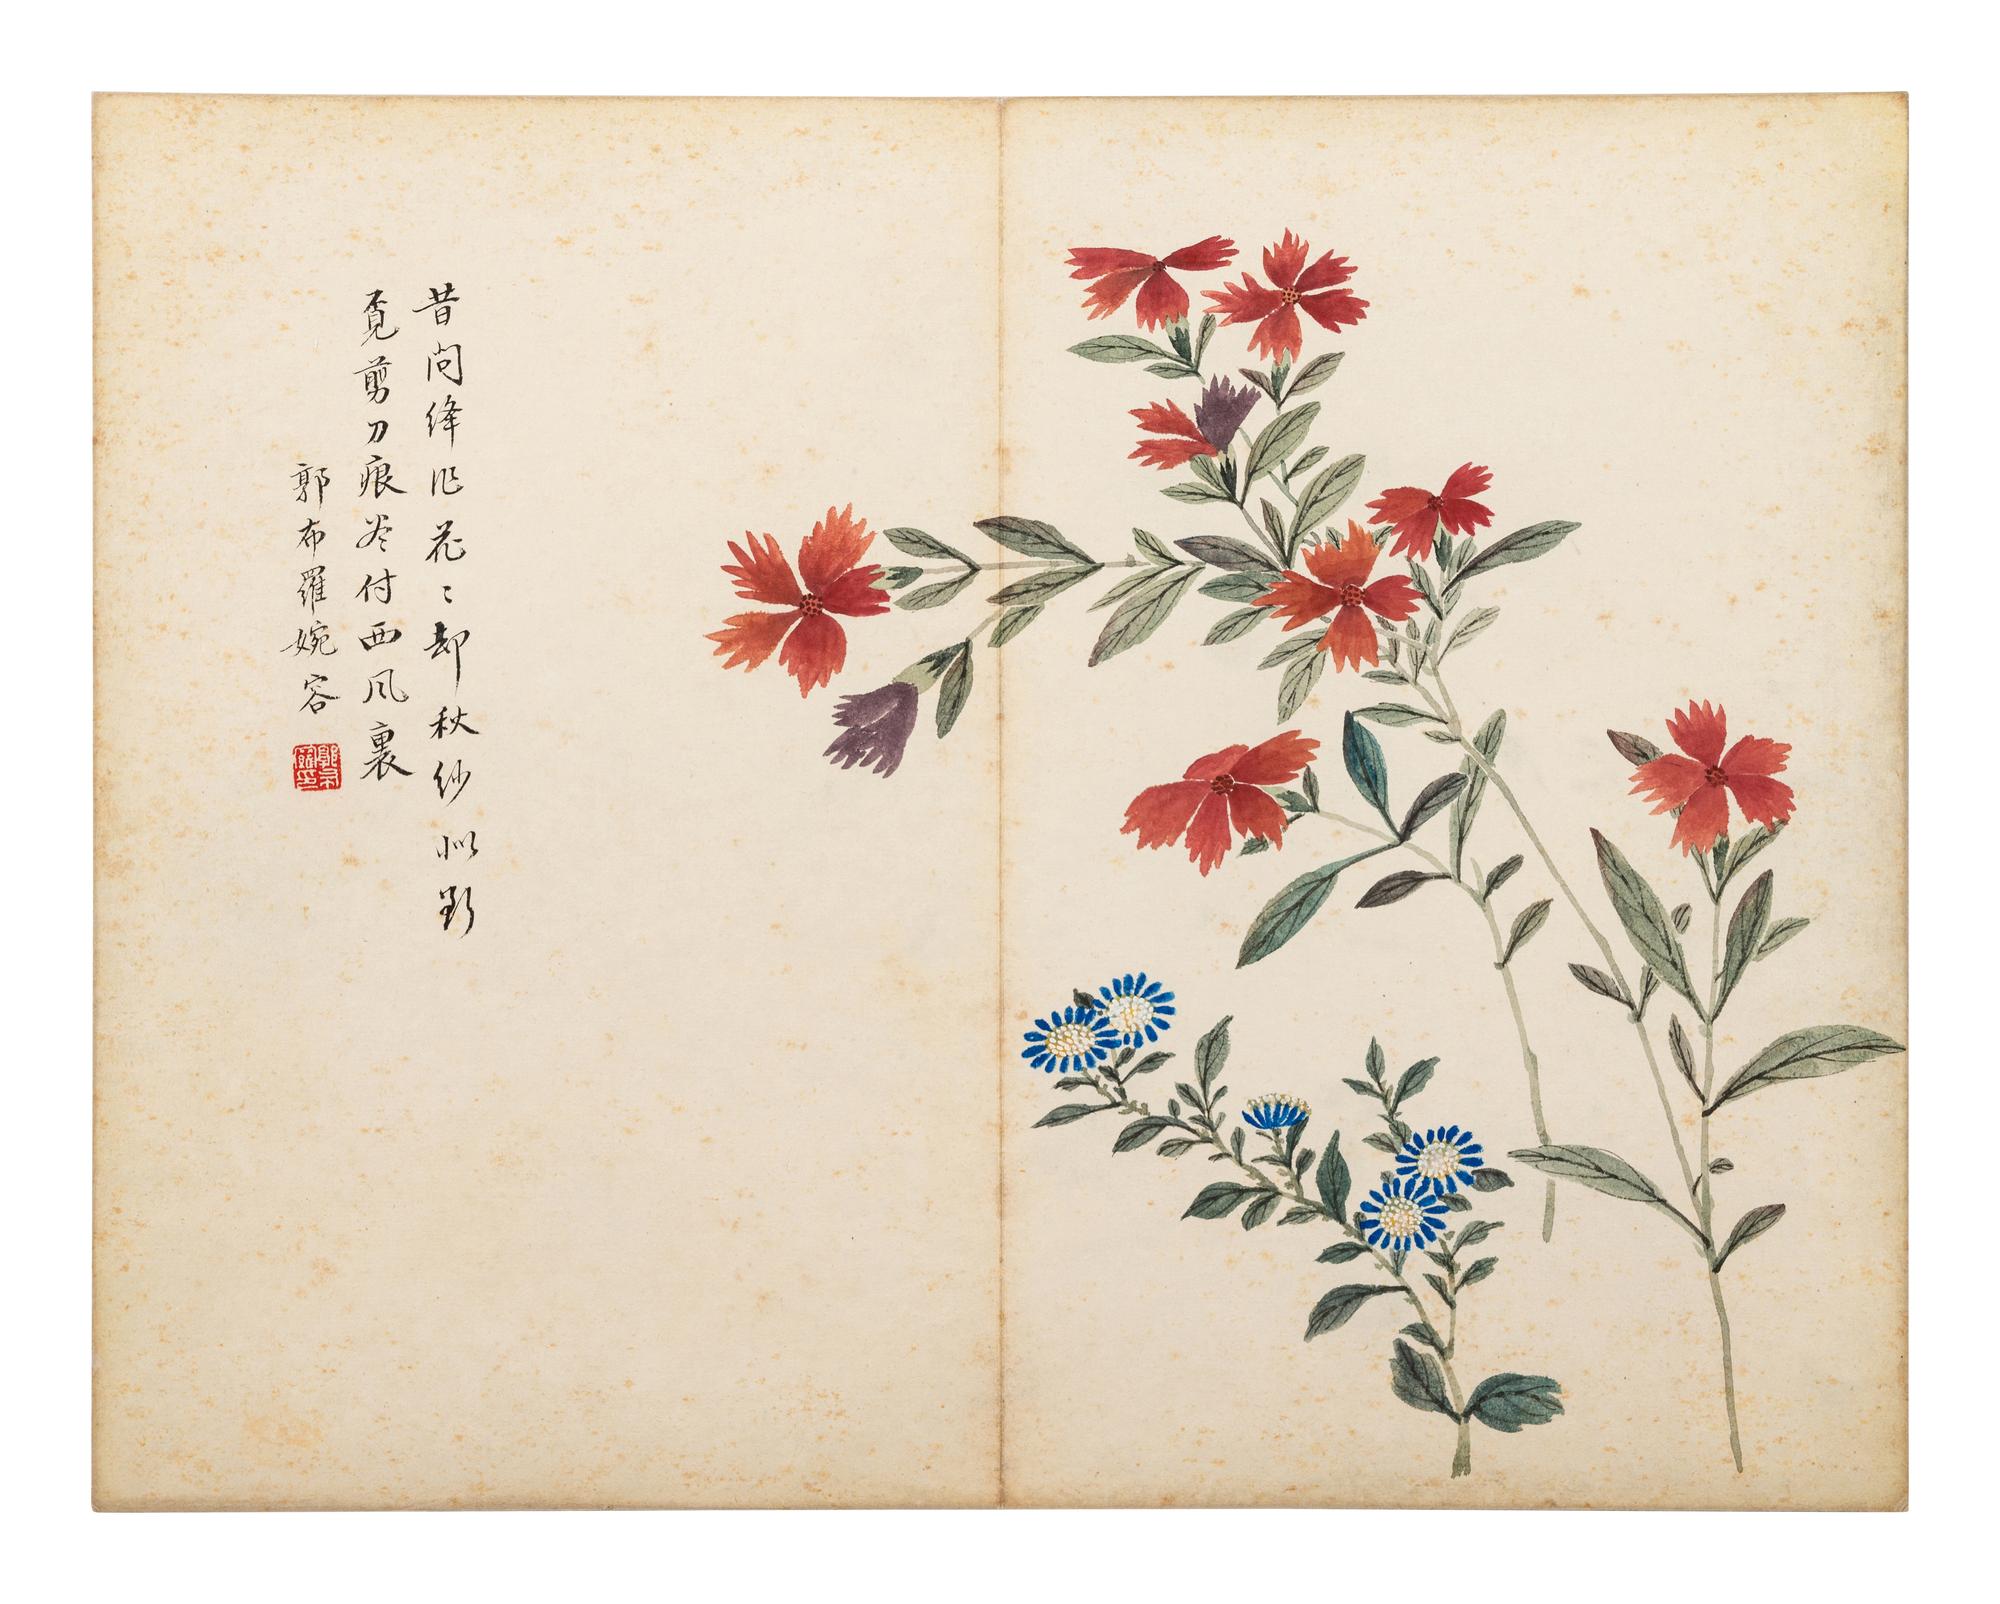 昔问绛作花〻却秋纱似影
覓剪刀痕尽付西风裏
郭布羅婉容